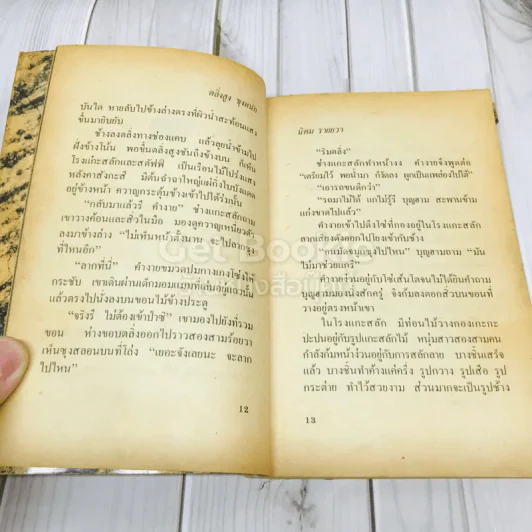 ตลิ่งสูง ซุงหนัก
บันได หายลับไปข้างล่างตรงที่ผิวน้ำสะท้อนแสง
ขึ้นมายิบยับ
ช้างลงตลิ่งทางช่องแคบ แล้วลุยน้ำข้ามไป
ฝั่งข้างโน้น พอขึ้นตลิ่งสูงชันถึงข้างบน ก็เห็น
โรงแกะสลักและสตัฟฟ์ เป็นเรือนไม้โปร่งแสง
หลังคาสังกะสี มีต้นฉำฉาใหญ่แผ่กิ่งใบบังแดด
อยู่ข้างหน้า ควาญกระตุ้นช้างเข้าไปใต้ร่มนั้น
"กลับมาแล้วรึ คำงาย" ช่างแกะสลักถาม
เขาวางค้อนและสิ่วในมือ มองดูควาญเหนี่ยวตัว
ลงมาข้างล่าง "ไม่เห็นหน้าตั้งนาน จะไปลากซุง
ที่ไหนอีก"
"ลากที่นี่" คำงายขมวดปมกางเกงโซ่งให้
กระชับ เขาเดินผ่านเด็กมอมแมมที่เล่นอยู่แถวนั้น
แล้วตรงไปนั่งลงบนขอนไม้ข้างประตู
"จริงรึ ไม่ต้องเข้าป่าซี" เขามองไปยังที่รวม
ขอน ห่างขอบตลิ่งออกไปราวสองสามร้อยวา
เห็นซุงสลอนบนที่โล่ง "เยอะจังเลยนะ จะลาก
ไปไหน"
12
นิคม รายยวา
"ริมตลิ่ง"
ช่างแกะสลักทำหน้างง คำงายจึงพูดต่อ
"เตรียมไว้ พอน้ำมา ก็งัดลง ผูกเป็นแพล่องไปได้"
"เอารถขนดีกว่า"
"รถมาไม่ได้ แกไม่รู้รึ บุญฮาม สะพานข้าม
แก่งขาดไปแล้ว"
คำงายเข้าไปดึงโซ่ที่กองอยู่ในโรงแกะสลัก
ลากเสียงดังออกไปโยงเข้ากับช้าง
"กูเบื่อจูงไปไหน" บุญฮามถาม "มัน
ไม่มาช่วยแกรึ"
คำงายง่วนอยู่กับโซ่เส้นโตจนไม่ได้ยินคำถาม
บุญฮามมองนิ่งสักครู่ จึงก้มลงตอกสิ่วบนขอนที่
วางอยู่ตรงหน้าเขา
ในโรงแกะสลัก มีท่อนไม้วางกองเกะกะ
ปะปนอยู่กับรูปแกะสลักไม้ หนุ่มสาวสองสามคน
กำลังก้มหน้าง่วนอยู่กับการสลักลาย บางชิ้นเสร็จ
แล้ว บางชิ้นทำค้างแค่ครึ่ง รูปกวาง รูปเสือ รูป
กระต่าย ทำไว้สวยงาม ส่วนมากจะเป็นรูปช้าง
13